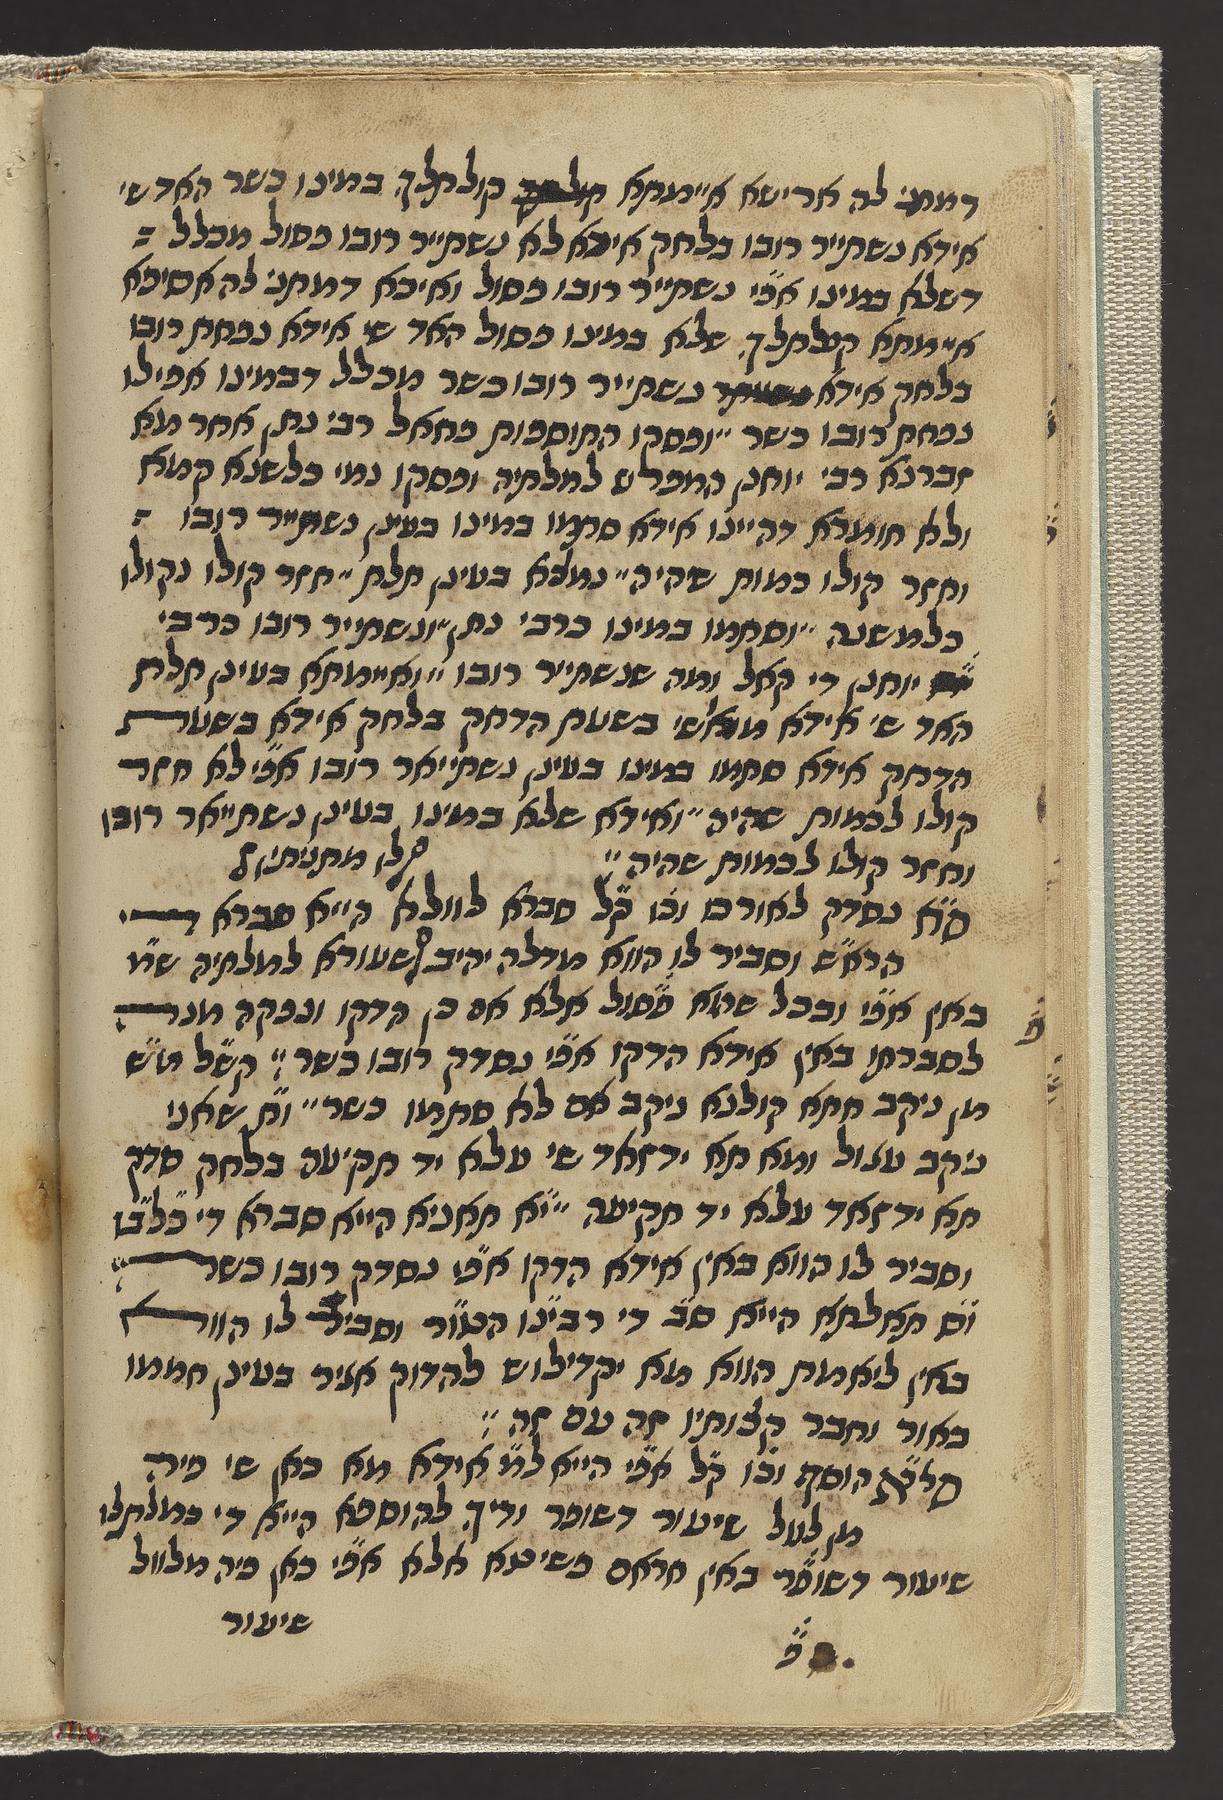 דמתני׳ לה ארישא אימתא קולתלך במינו כשר האד שי
אידא נשתייר רובו בלחק אידא לא נשתייר רובו פסול מכלל
דשלא במינו אפי׳ נשתייר רובו פסול ואיכא דמתני׳ לה אסיפא
אימתא קולתלך שלא במינו פסול האד שי אידא נפחת רובו
בלחק אידא נשתייר רובו כשר מכלל דבמינו אפילו
נפחת רובו כשר ״ ופסקו התוספות פחאל רבי נתן אחר מא
זברנא רבי יוחנן המפרש למלתיה ופסקו נמי כלשנא קמא
ולא חומרא דהיינו אידא סתמו במינו בעינן נשתייר רובו
וחזר קולו כמות שהיה ״ נמצא בעינן תלת ״ חזר קולו נקולו
כלמשנה ״ וסתמו במינו כרבי נתן ״ ונשתייר רובו כרבי
יוחנן די קאל ומה שנשתייר רובו ״ ואימתא בעינן תלת
האד שי אידא מאשי בשעת הדחק בלחק אידא בשעת
הדחק אידא סתמו במינו בעינן נשתייאר רובו אפי׳ לא חזר
קולו לכמות שהיה ״ ואידא שלא במינו בעינן נשתייאר רובו
וחזר קולו לכמות שהיה ״ סלק מתניתין
ס״א נסדק לאורכו וכו׳ קאל סברא לוולא הייא סברא די
הרא״ש וסביר לו הווא מדלה יהיב שעורא למלתיה ש״מ
באין אפי׳ ובכל שהוא פסול אלא אם כן הדקו ונפקה מנה
לסברתו באין אידא הדקו אפי׳ נסדק רובו כשר ״ קשל מ״ש
מן ניקב חתא קולנא ניקב אם לא סתמו כשר ״ ות׳ שאני
ניקב עגול ומא תא ידזאד שי עלא יד תקיעה בלחק סדק
תא ידזאד עלא יד תקיעה ״ וא תאניא הייא סברא די
וסביר לו הווא באין אידא הדקו אפי׳ נסדק רובו כשר ״
וס תאלתא הייא סב׳ די רבינו הטור וסביר לו הווא
באין ליאמת הווא מא יקדילוש להדוק אגיר בעינן חממו
באור וחבר קצותיו זה עם זה ״
הוסיף וכו׳ קאל אפי׳ הייא למ׳ אידא מא כאן שי פיה
מן לעל שיעור דשופר וריך להוספא הייא די כמלתלו
שיעור דשופר באין חראם פשיטא אלא אפי׳ כאן פיה מלוול
שיעור